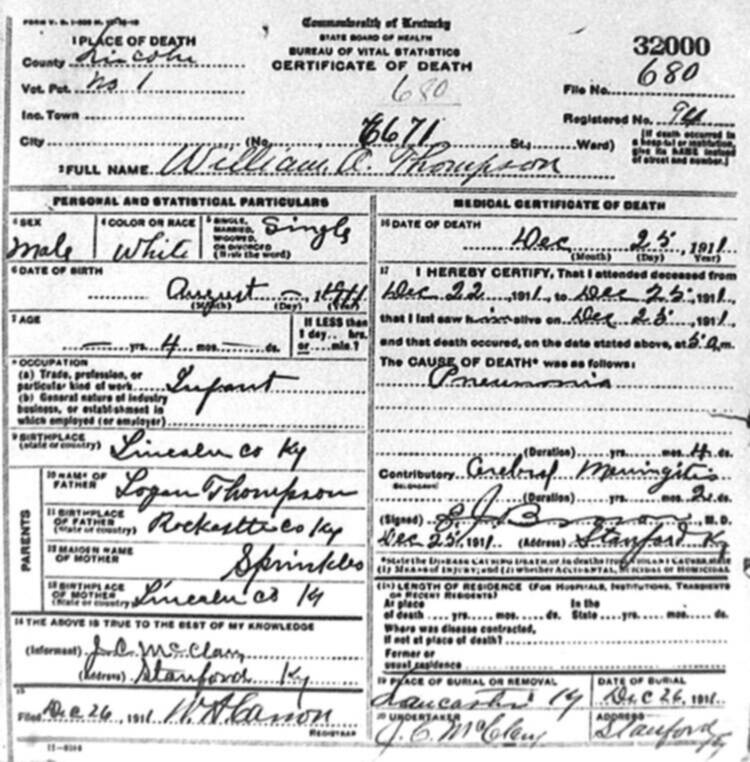 Commonwealth of Kentucky
STATE BOARD OF HEALTH
BUREAU OF VITAL STATISTICS
CERTIFICATE OF DEATH
32000
680
1 PLACE OF DEATH
County Lincoln
Vot. Pct. No 1
Inc. Town
City (No. 6671 St., Ward)
File No. 680
Registered No. 94
[If death occurred in a hospital or institution, give its NAME instead of street and number.]
2 FULL NAME William O. Thompson
PERSONAL AND STATISTICAL PARTICULARS
3 SEX Male
4 COLOR OR RACE White
5 SINGLE, MARRIED, WIDOWED, OR DIVORCED (Write the word) Single
6 DATE OF BIRTH
August — 1911
(Month) (Day) (Year)
7 AGE
— yrs. 4 mos. — ds.
If LESS than 1 day.. hrs. or .. min.?
8 OCCUPATION
(a) Trade, profession, or particular kind of work Infant
(b) General nature of industry business, or establishment in which employed (or employer)
9 BIRTHPLACE (State or country) Lincoln Co Ky
PARENTS
10 NAME OF FATHER Logan Thompson
11 BIRTHPLACE OF FATHER (State or country) Co Ky
12 MAIDEN NAME OF MOTHER Sprinkles
13 BIRTHPLACE OF MOTHER (State or country) Lincoln Co Ky
14 THE ABOVE IS TRUE TO THE BEST OF MY KNOWLEDGE
(Informant) J. C. McClary
(Address) Stanford Ky
15
Filed Dec 26, 1911 W. A. Carson
REGISTRAR
MEDICAL CERTIFICATE OF DEATH
16 DATE OF DEATH
Dec 25, 1911
(Month) (Day) (Year)
17 I HEREBY CERTIFY, That I attended deceased from
Dec 22 1911, to Dec 25, 1911,
that I last saw him alive on Dec 25, 1911
and that death occured, on the date stated above, at 5 a m.
The CAUSE OF DEATH* was as follows:
Pneumonia
(Duration) yrs. mos. 4 ds.
Contributory Cerebral Meningitis
(Duration) yrs. mos. 2 ds.
(Signed) E. J. Brown, M. D.
Dec 25, 1911 (Address) Stanford Ky
18 LENGTH OF RESIDENCE (FOR HOSPITALS, INSTITUTIONS, TRANSIENTS OR RECENT RESIDENTS)
At place of death .... yrs. .... mos. .... ds. In the State .... yrs. .... mos. .... ds.
Where was disease contracted, if not at place of death?
Former or usual residence
19 PLACE OF BURIAL OR REMOVAL Lancaster Ky
DATE OF BURIAL Dec 26, 1911
20 UNDERTAKER J. C. McClary
ADDRESS Stanford Ky